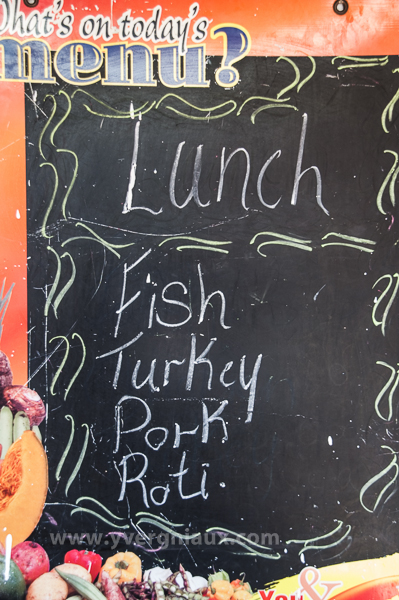 What's on today's
menu?
Lunch
Fish
Turkey
Pork
Roti
www.yvergniaux.com
You &